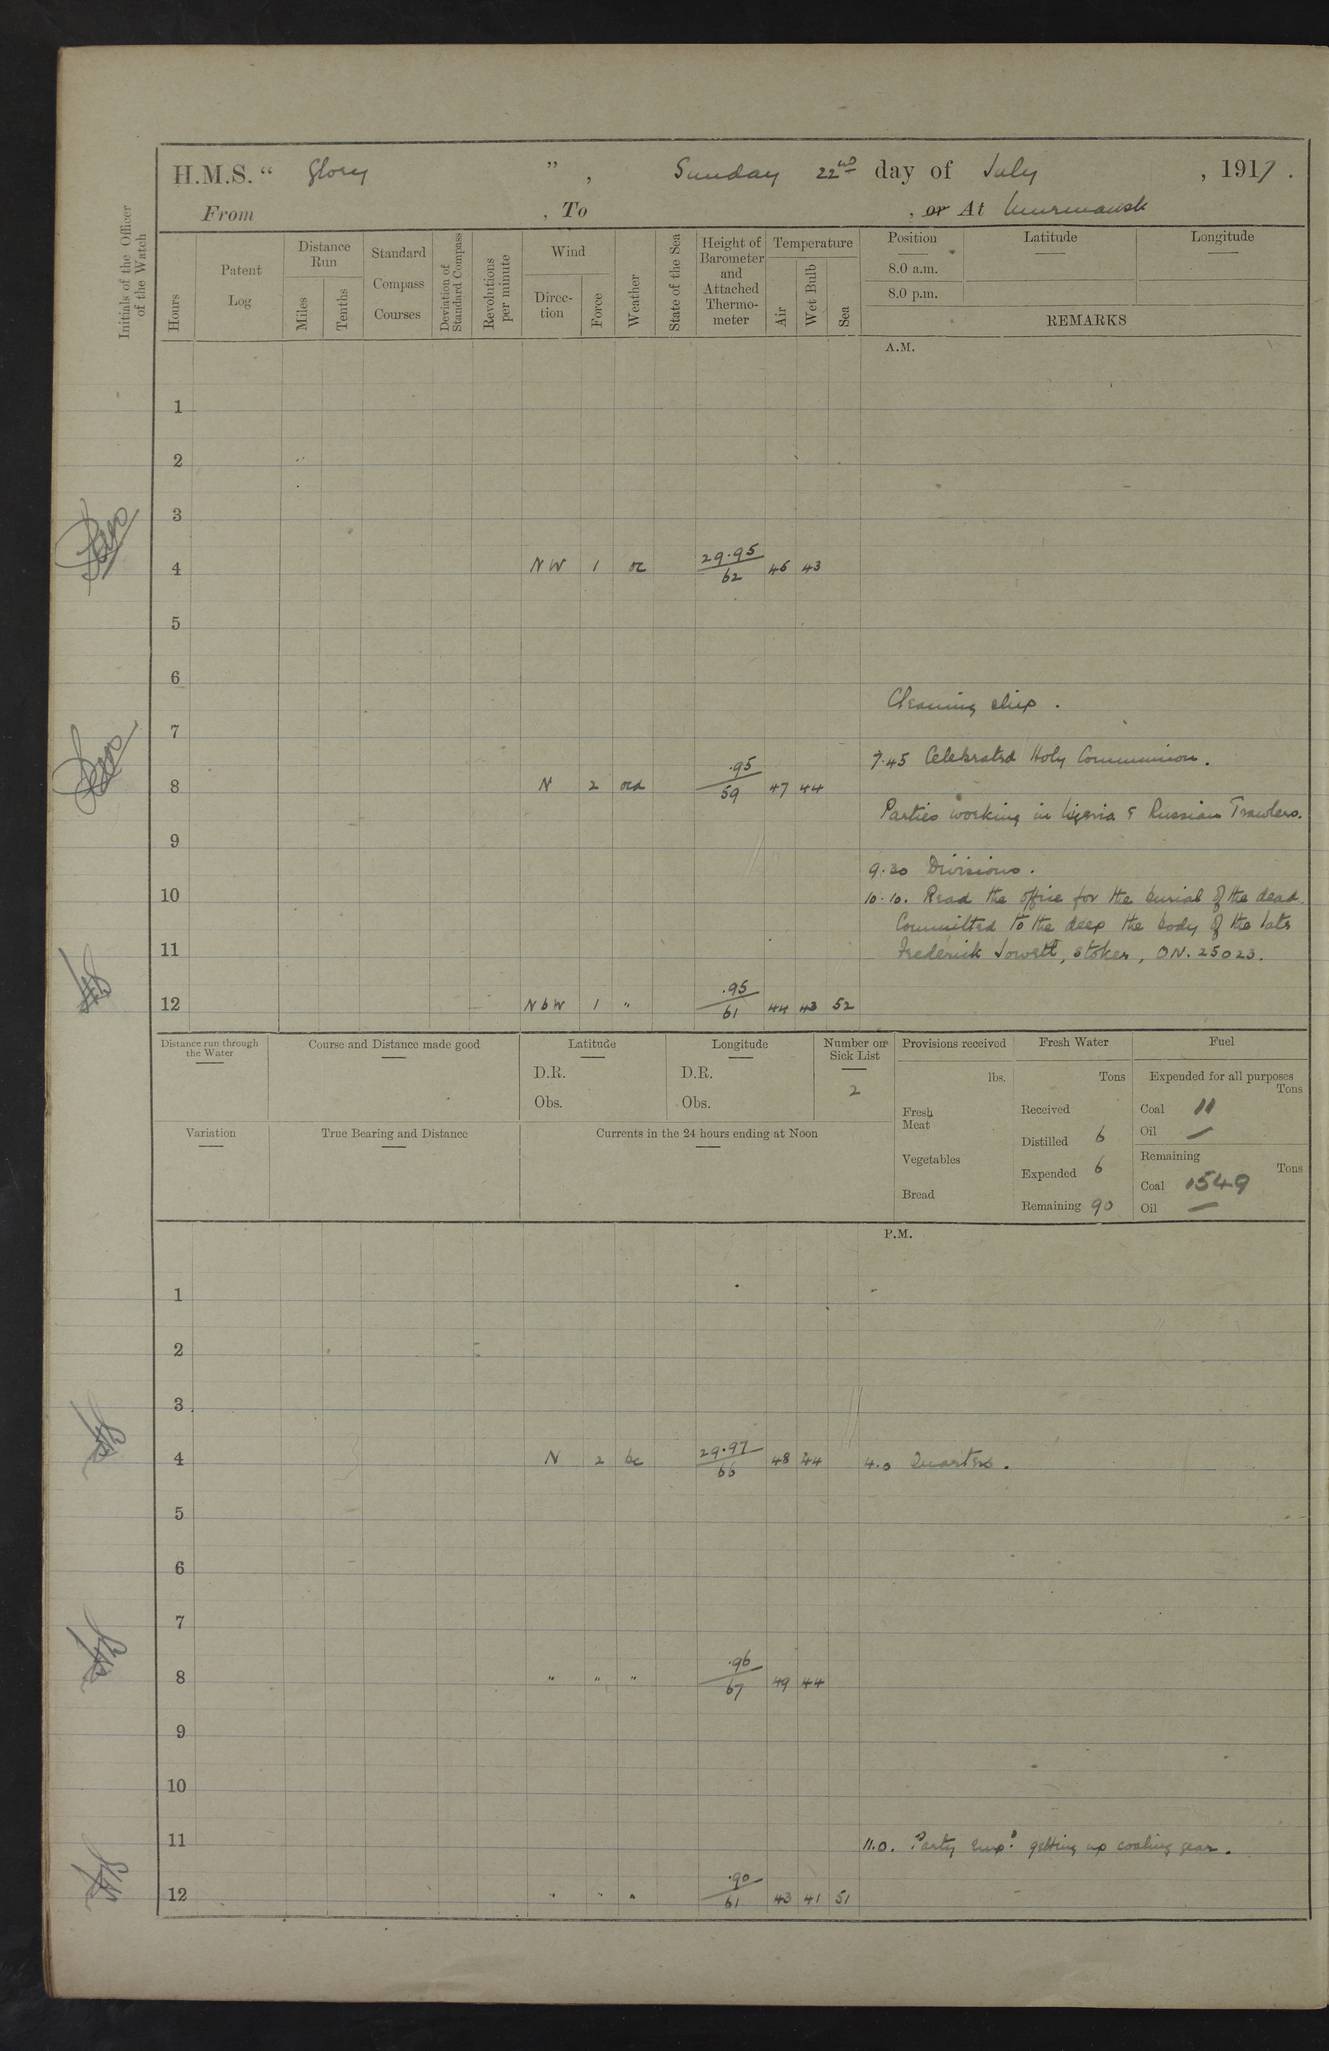 H.M.S. “ Glory ” , Sunday 22nd day of July , 1917 .
From , To , or At Murmansk
Initials of the Officer of the Watch
Hours
Patent Log
Distance Run
Miles
Tenths
Standard Compass Courses
Deviation of Standard Compass
Revolutions per minute
Wind
Direc-tion
Force
Weather
State of the Sea
Height of Barometer and Attached Thermo-meter
Temperature
Air
Wet Bulb
Sea
Position
8.0 a.m.
8.0 p.m.
Latitude
Longitude
REMARKS
A.M.
1
2
3
4 NW 1 oc 29.95/62 46 43
5
6
Cleaning ship .
7
7.45 Celebrated Holy Communion .
8 N 2 ocd .95/59 47 44
Parties working in & Russian Trawlers.
9
9.30 Divisions .
10
10.10. Read the office for the burial of the dead.
Committed to the deep the body of the late
11
Frederick Jowett, Stoker, ON. 25023.
12 N b W 1 " .95/61 44 43 52
Distance run through the Water
Course and Distance made good
Latitude
D.R.
Obs.
Longitude
D.R.
Obs.
Number on Sick List
2
Provisions received
lbs.
Fresh Meat
Vegetables
Bread
Fresh Water
Tons
Received
Distilled 6
Expended 6
Remaining 90
Fuel
Expended for all purposes
Tons
Coal 11
Oil —
Remaining
Tons
Coal 1549
Oil —
Variation
True Bearing and Distance
Currents in the 24 hours ending at Noon
P.M.
1
2
3
4 N 2 bc 29.97/66 48 44 4.0 Quarters .
5
6
7
8 " " " .96/67 49 44
9
10
11 11.0. Party emp.d getting up coaling gear .
12 " " " .90/61 43 41 51